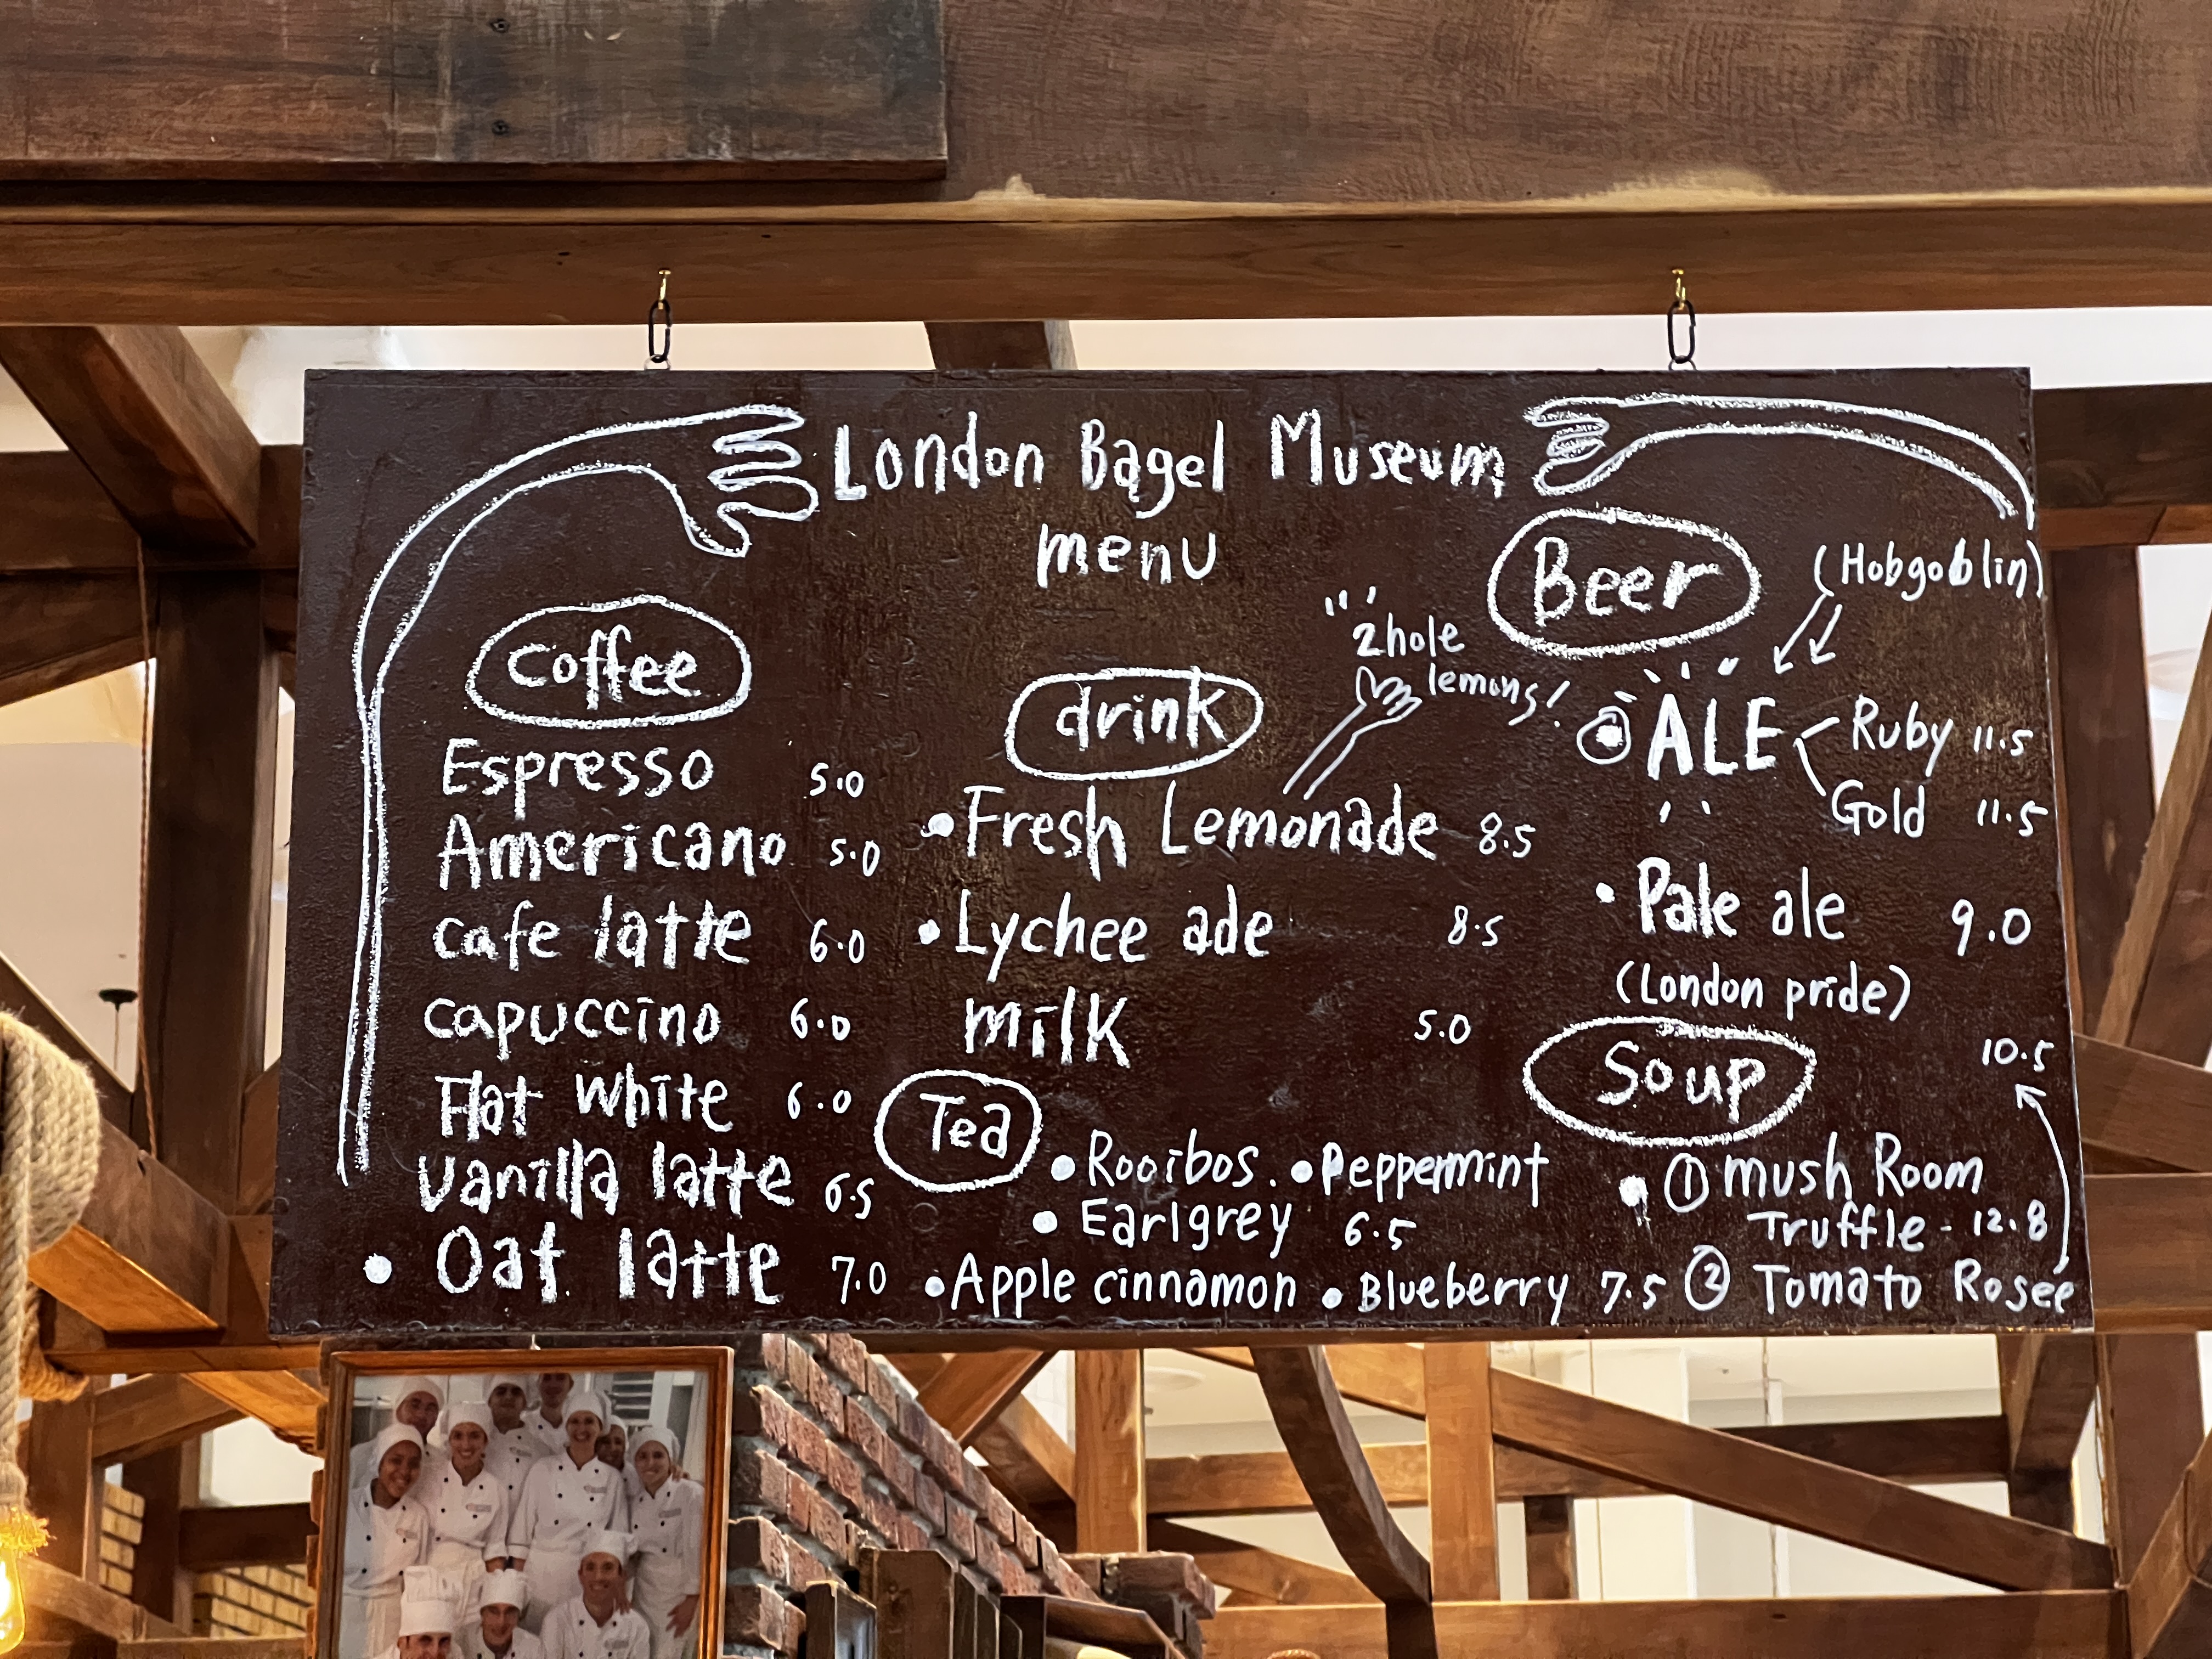 London Bagel Museum
menu
coffee
Espresso 5.0
Americano 5.0
cafe latte 6.0
capuccino 6.0
Flat white 6.0
vanilla latte 6.5
• Oat latte 7.0
drink
2hole
lemons!
• Fresh Lemonade 8.5
• Lychee ade 8.5
milk 5.0
Tea
• Rooibos. • Peppermint
• Earlgrey 6.5
• Apple cinnamon • Blueberry 7.5
Beer
(Hobgoblin)
ALE Ruby 11.5
Gold 11.5
• Pale ale 9.0
(London pride)
Soup
10.5
• ① mush Room
Truffle - 12.8
② Tomato Rosee